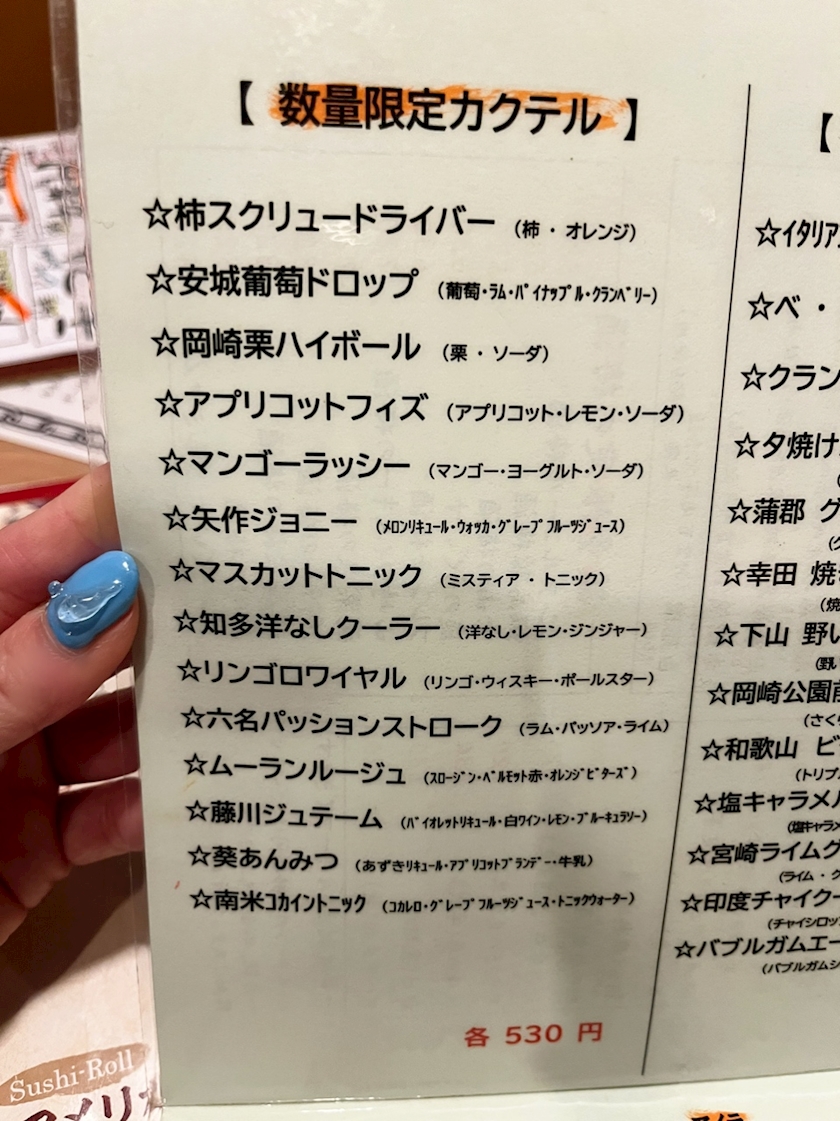 【 数量限定カクテル 】
☆柿スクリュードライバー (柿・オレンジ)
☆安城葡萄ドロップ (葡萄・ラム・パイナップル・クランベリー)
☆岡崎栗ハイボール (栗・ソーダ)
☆アプリコットフィズ (アプリコット・レモン・ソーダ)
☆マンゴーラッシー (マンゴー・ヨーグルト・ソーダ)
☆矢作ジョニー (メロンリキュール・ウォッカ・グレープフルーツジュース)
☆マスカットトニック (ミスティア・トニック)
☆知多洋なしクーラー (洋なし・レモン・ジンジャー)
☆リンゴロワイヤル (リンゴ・ウィスキー・ポールスター)
☆六名パッションストローク (ラム・パッソア・ライム)
☆ムーランルージュ (スロージン・ベルモット赤・オレンジビターズ)
☆藤川ジュテーム (バイオレットリキュール・白ワイン・レモン・ブルーキュラソー)
☆葵あんみつ (あずきリキュール・アプリコットブランデー・牛乳)
☆南米コカイントニック (コカレロ・グレープフルーツジュース・トニックウォーター)
各 530 円
【
☆イタリア
☆ベ・
☆クラン
☆夕焼け
☆蒲郡 グ
☆幸田 焼
(焼
☆下山 野い
(野い
☆岡崎公園前
(さく
☆和歌山 ビ
(トリプル
☆塩キャラメル
(塩キャラメ
☆宮崎ライムグ
(ライム・グ
☆印度チャイクー
(チャイシロッ
☆バブルガムエー
(バブルガムシ
Sushi-Roll
アメリ